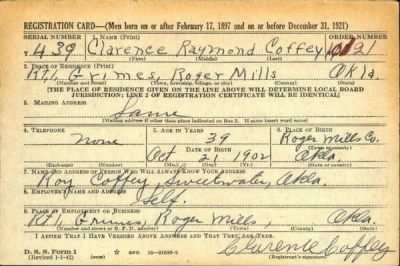 REGISTRATION CARD—(Men born on or after February 17, 1897 and on or before December 31, 1921)
SERIAL NUMBER 1. NAME (Print) ORDER NUMBER
T 439 Clarence Raymond Coffey
(First) (Middle) (Last)
2. PLACE OF RESIDENCE (Print)
Rt1, Grimes, Roger Mills Okla.
(Number and street) (Town, township, village, or city) (County) (State)
[THE PLACE OF RESIDENCE GIVEN ON THE LINE ABOVE WILL DETERMINE LOCAL BOARD
JURISDICTION; LINE 2 OF REGISTRATION CERTIFICATE WILL BE IDENTICAL]
3. MAILING ADDRESS
Same
[Mailing address if other than place indicated on line 2. If same insert word same]
4. TELEPHONE 5. AGE IN YEARS 6. PLACE OF BIRTH
None 39 Roger Mills Co.
DATE OF BIRTH (Town or county)
Oct 21 1902 Okla.
(Exchange) (Number) (Mo.) (Day) (Yr.) (State or country)
7. NAME AND ADDRESS OF PERSON WHO WILL ALWAYS KNOW YOUR ADDRESS
Roy Coffey, Sweetwater, Okla.
8. EMPLOYER'S NAME AND ADDRESS
Self.
9. PLACE OF EMPLOYMENT OR BUSINESS
Rt1, Grimes, Roger Mills, Okla.
(Number and street or R. F. D. number) (Town) (County) (State)
I AFFIRM THAT I HAVE VERIFIED ABOVE ANSWERS AND THAT THEY ARE TRUE.
D. S. S. Form 1
(Revised 1-1-42) (over) Clarence Coffey